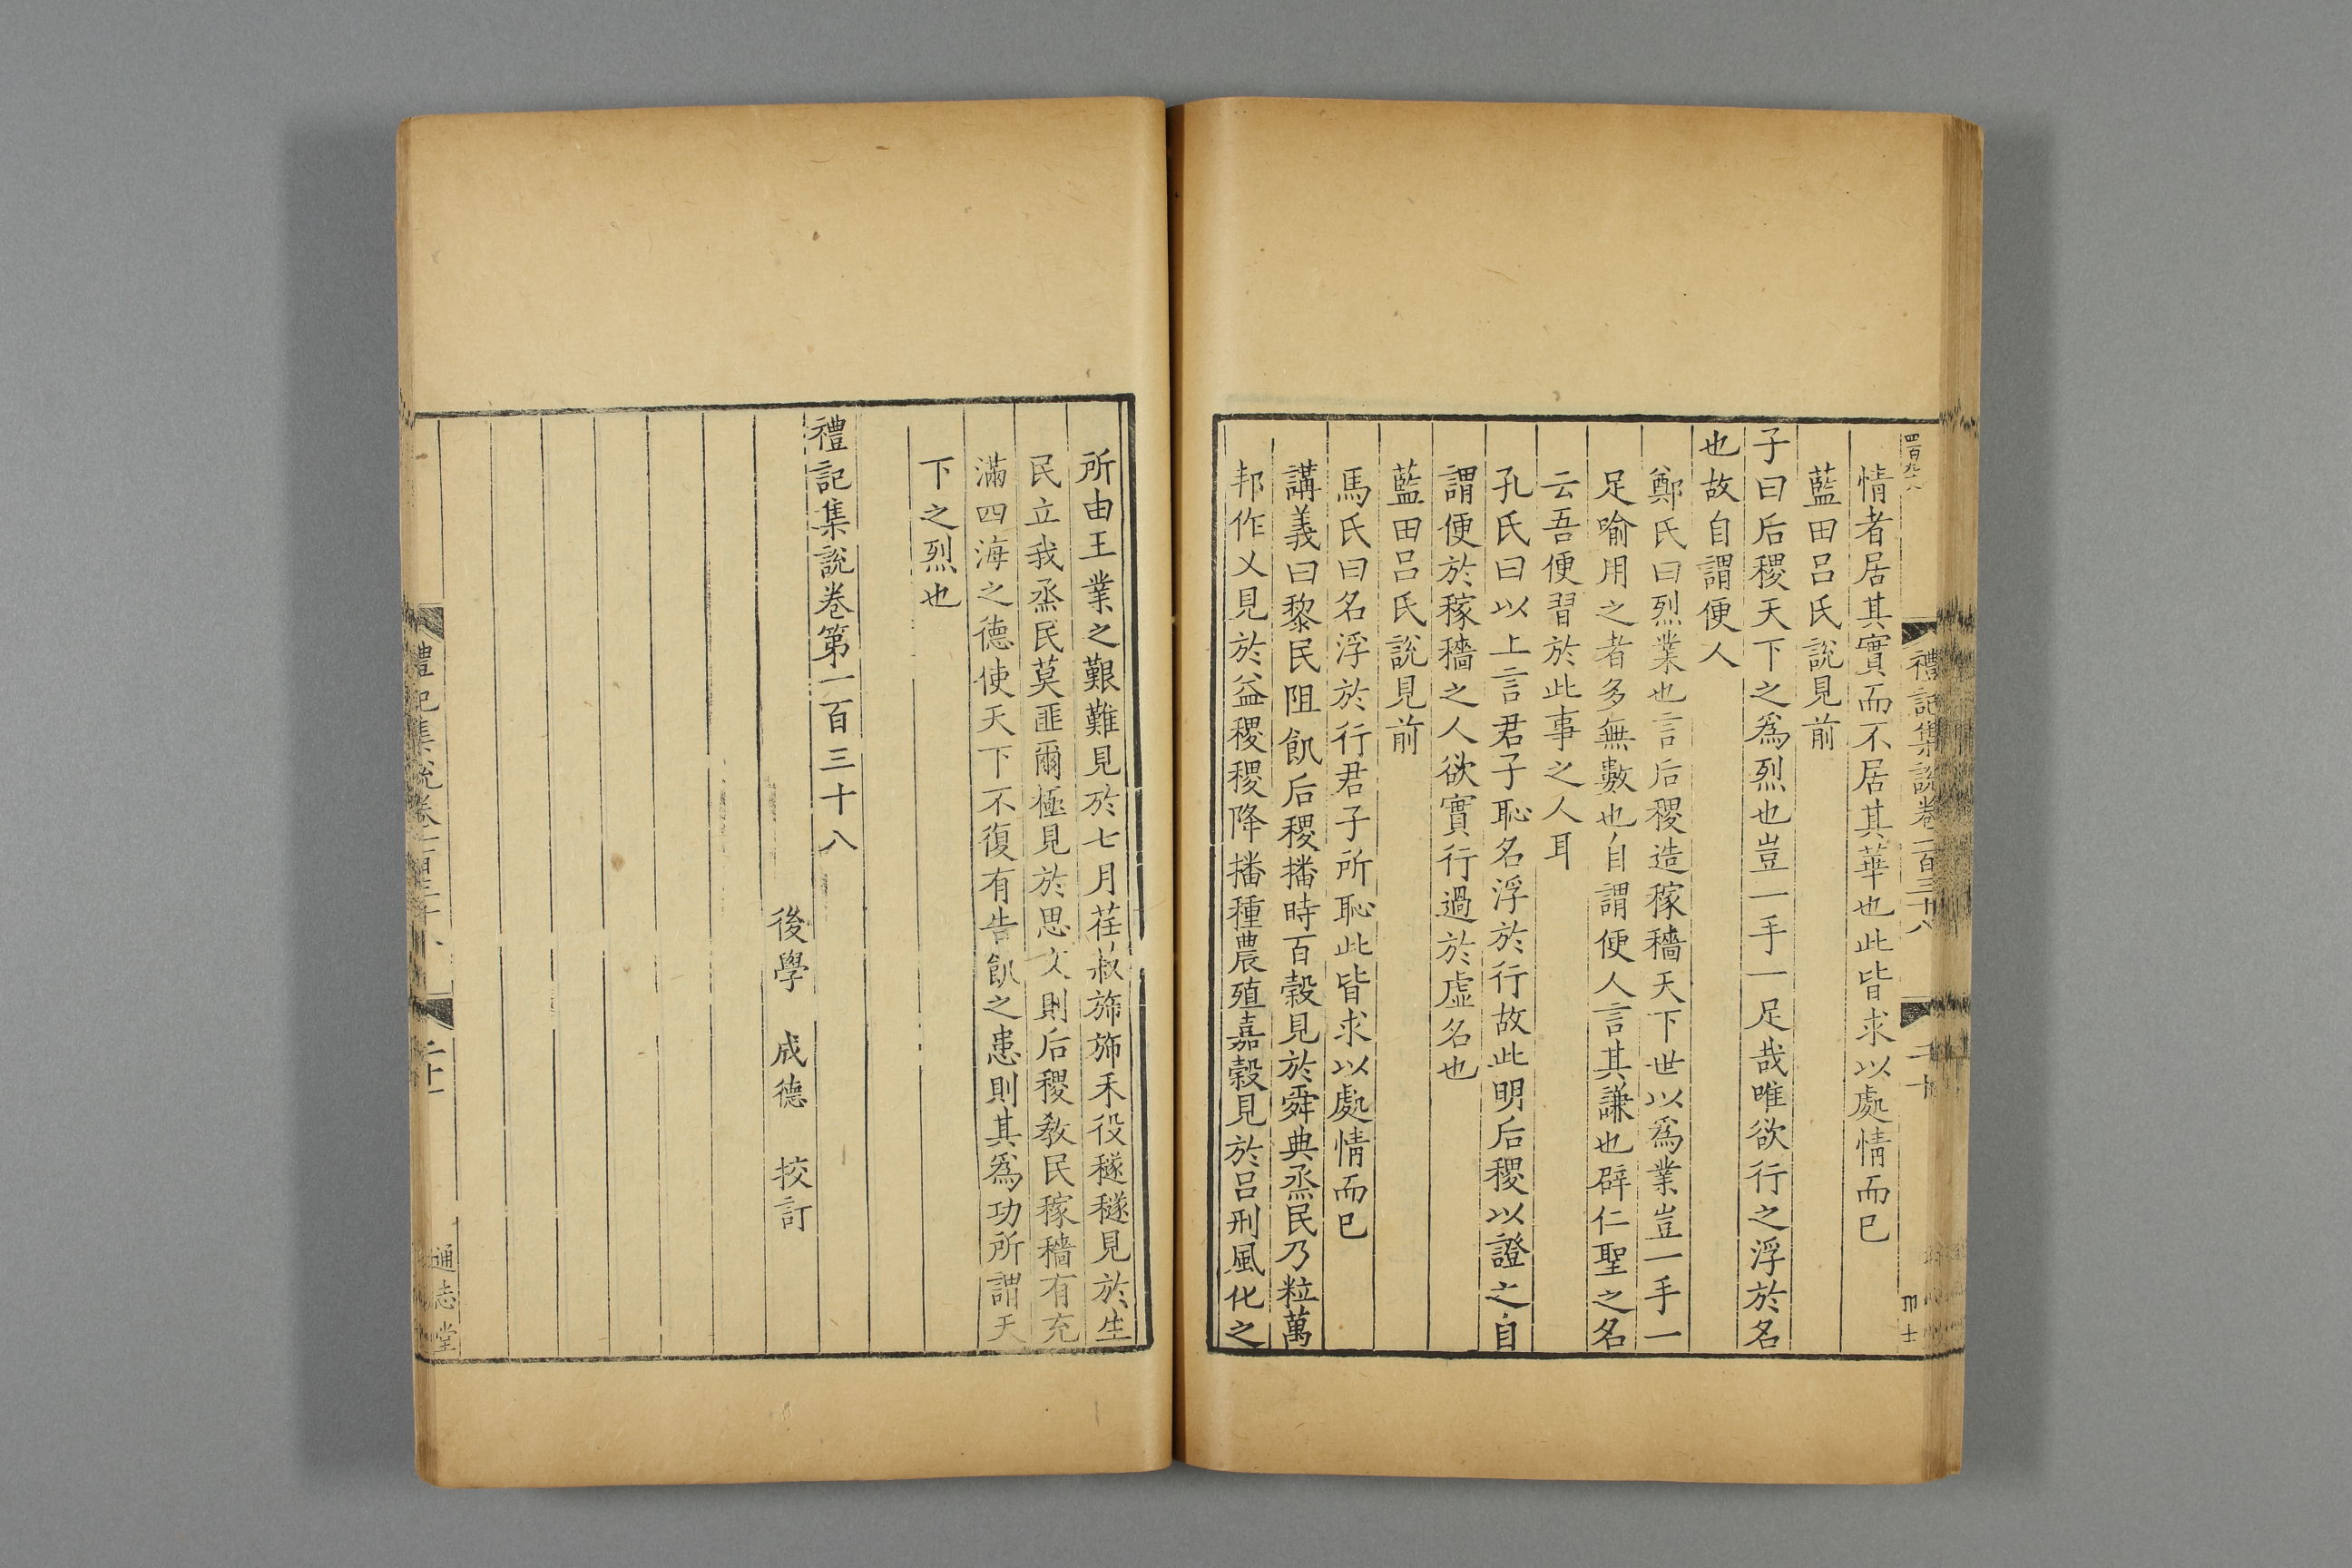 四百九十八
禮記集說卷一百三十八
二十
情者居其實而不居其華也此皆求以處情而已
藍田呂氏說見前
子曰后稷天下之爲烈也豈一手一足哉唯欲行之浮於名
也故自謂便人
鄭氏曰烈業也言后稷造稼穡天下世以爲業豈一手一
足喻用之者多無數也自謂便人言其謙也辟仁聖之名
云吾便習於此事之人耳
孔氏曰以上言君子恥名浮於行故此明后稷以證之自
謂便於稼穡之人欲實行過於虛名也
藍田呂氏說見前
馬氏曰名浮於行君子所恥此皆求以處情而已
講義曰黎民阻飢后稷播時百穀見於舜典烝民乃粒萬
邦作乂見於益稷稷降播種農殖嘉穀見於呂刑風化之
所由王業之艱難見於七月荏菽旆旆禾役穟穟見於生
民立我烝民莫匪爾極見於思文則后稷敎民稼穡有充
滿四海之德使天下不復有告飢之患則其爲功所謂天
下之烈也
禮記集說卷第一百三十八
後學 成德 挍訂
禮記集說卷一百三十八
二十一
通志堂